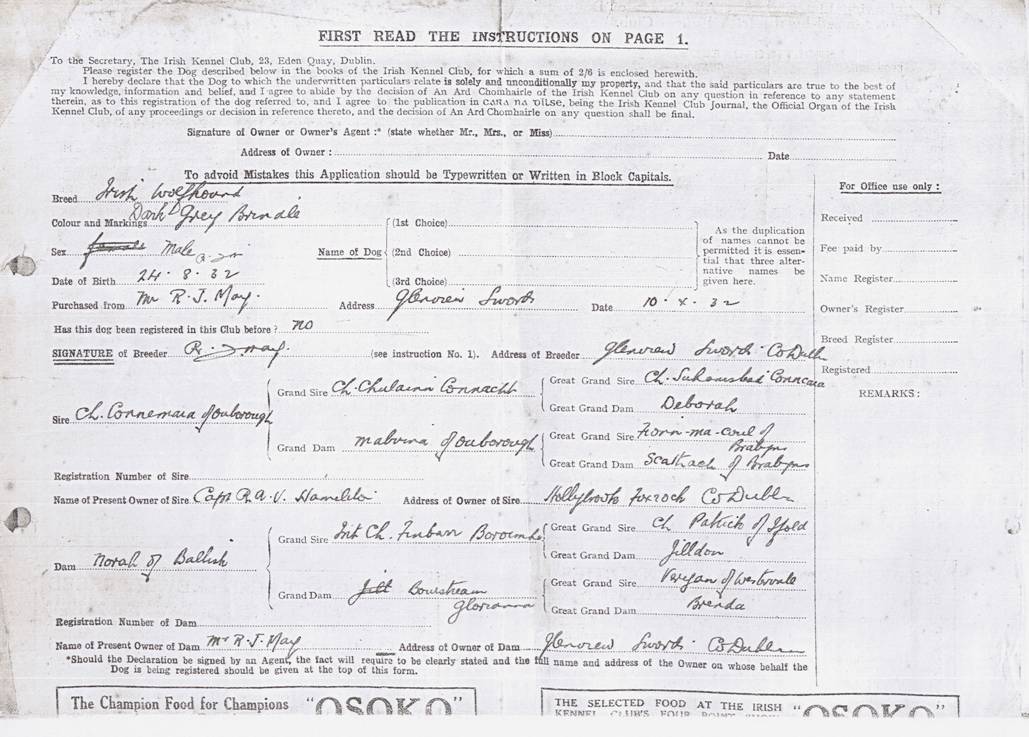 FIRST READ THE INSTRUCTIONS ON PAGE 1.
To the Secretary, The Irish Kennel Club, 23, Eden Quay, Dublin.
Please register the Dog described below in the books of the Irish Kennel Club, for which a sum of 2/6 is enclosed herewith.
I hereby declare that the Dog to which the underwritten particulars relate is solely and unconditionally my property, and that the said particulars are true to the best of
my knowledge, information and belief, and I agree to abide by the decision of An Ard Chomhairle of the Irish Kennel Club on any question in reference to any statement
therein, as to this registration of the dog referred to, and I agree to the publication in CARA NA DÍLSE, being the Irish Kennel Club Journal, the Official Organ of the Irish
Kennel Club, of any proceedings or decision in reference thereto, and the decision of An Ard Chomhairle on any question shall be final.
Signature of Owner or Owner's Agent :* (state whether Mr., Mrs., or Miss)
Address of Owner : Date
To advoid Mistakes this Application should be Typewritten or Written in Block Capitals.
For Office use only :
Breed Irish Wolfhound
Colour and Markings Dark Grey Brindle
Sex female Male
Date of Birth 24·8·32
Name of Dog
(1st Choice)
(2nd Choice)
(3rd Choice)
As the duplication
of names cannot be
permitted it is essen-
tial that three alter-
native names be
given here.
Purchased from Mr R.J. May. Address Glenview Swords Date 10·X·32
Has this dog been registered in this Club before? no
SIGNATURE of Breeder R. J May. (see instruction No. 1). Address of Breeder Glenview Swords Co Dublin
Received
Fee paid by
Name Register
Owner's Register
Breed Register
Registered
REMARKS :
Sire Ch. Connemara of Ouborough
Grand Sire Ch. Chulainn Connacht
Great Grand Sire Ch.
Great Grand Dam Deborah
Grand Dam Malvina of Ouborough
Great Grand Sire Fionn-ma-coul of Brabyns
Great Grand Dam Scathach of Brabyns
Registration Number of Sire
Name of Present Owner of Sire Capt R.A.V. Hamilton Address of Owner of Sire Hollybrook Foxrock Co Dublin
Dam Norah of Ballish
Grand Sire Int Ch. Finbarr Boroimhe
Great Grand Sire Ch Patrick of Ifold
Great Grand Dam Jilldon
Grand Dam Jilt Bournstream Glorianna
Great Grand Sire Veryan of Westervale
Great Grand Dam Brenda
Registration Number of Dam
Name of Present Owner of Dam Mr R.J. May Address of Owner of Dam Glenview Swords Co Dublin
*Should the Declaration be signed by an Agent, the fact will require to be clearly stated and the full name and address of the Owner on whose behalf the
Dog is being registered should be given at the top of this form.
The Champion Food for Champions "OSOKO"
THE SELECTED FOOD AT THE IRISH "OSOKO"
KENNEL CLUB'S FOUR POINT SHOW